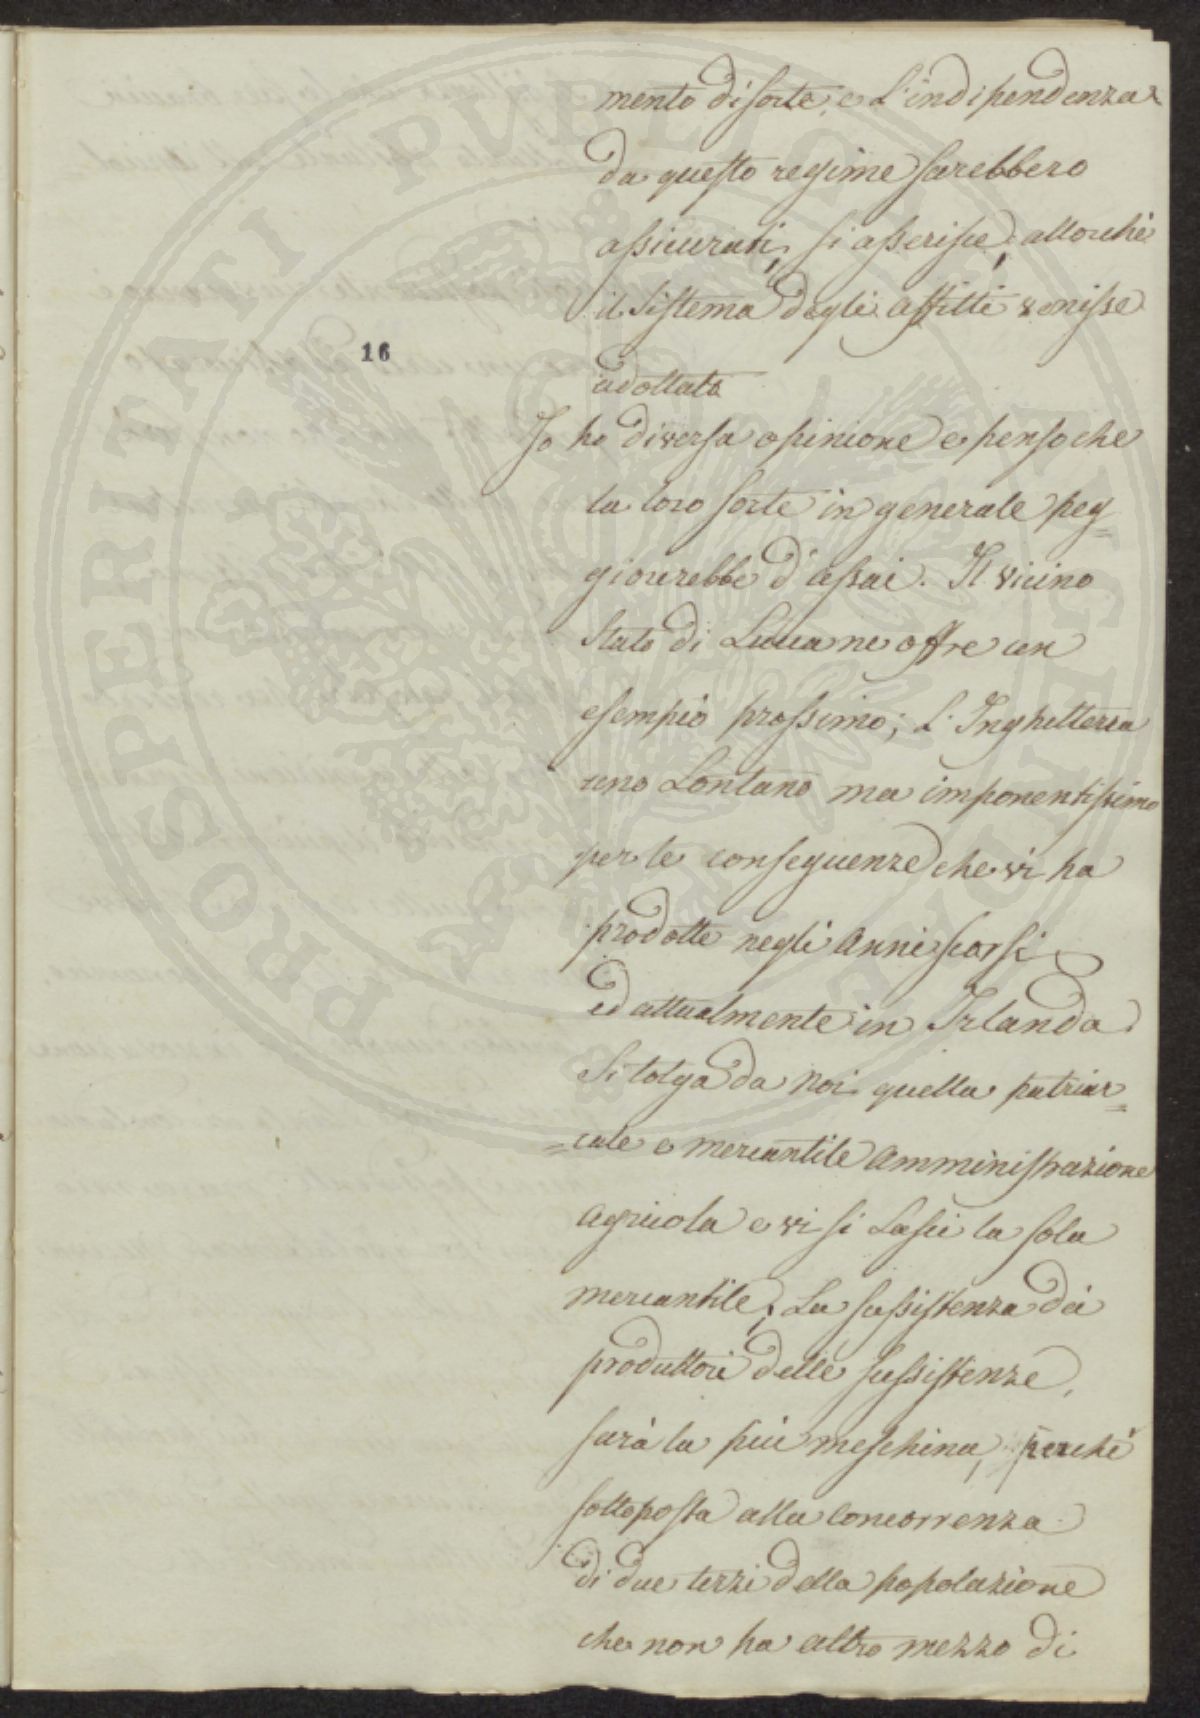 mento di sorte, e L'indipendenza
da questo regime sarebbero
assicurati, si asserisce, allorchè
il Sistema degli affitti venisse
adottato
16
Io ho diversa opinione e penso che
la loro sorte in generale peg=
giorerebbe d'assai. Il vicino
Stato di Lucca ne offre un
esempio prossimo; L'Inghilterra
uno Lontano ma imponentissimo
per le conseguenze che vi ha
prodotte negli Anni scorsi
ed attualmente in Irlanda.
Si tolga da Noi quella patriar=
=cale e mercantile Amministrazione
Agricola e vi si Lasci la sola
mercantile; La sussistenza dei
produttori delle sussistenze,
sarà la più meschina, perchè
sottoposta alla concorrenza
di due terzi della popolazione
che non ha altro mezzo di
PROSPERITATI PVBLICAE AVGENDAE